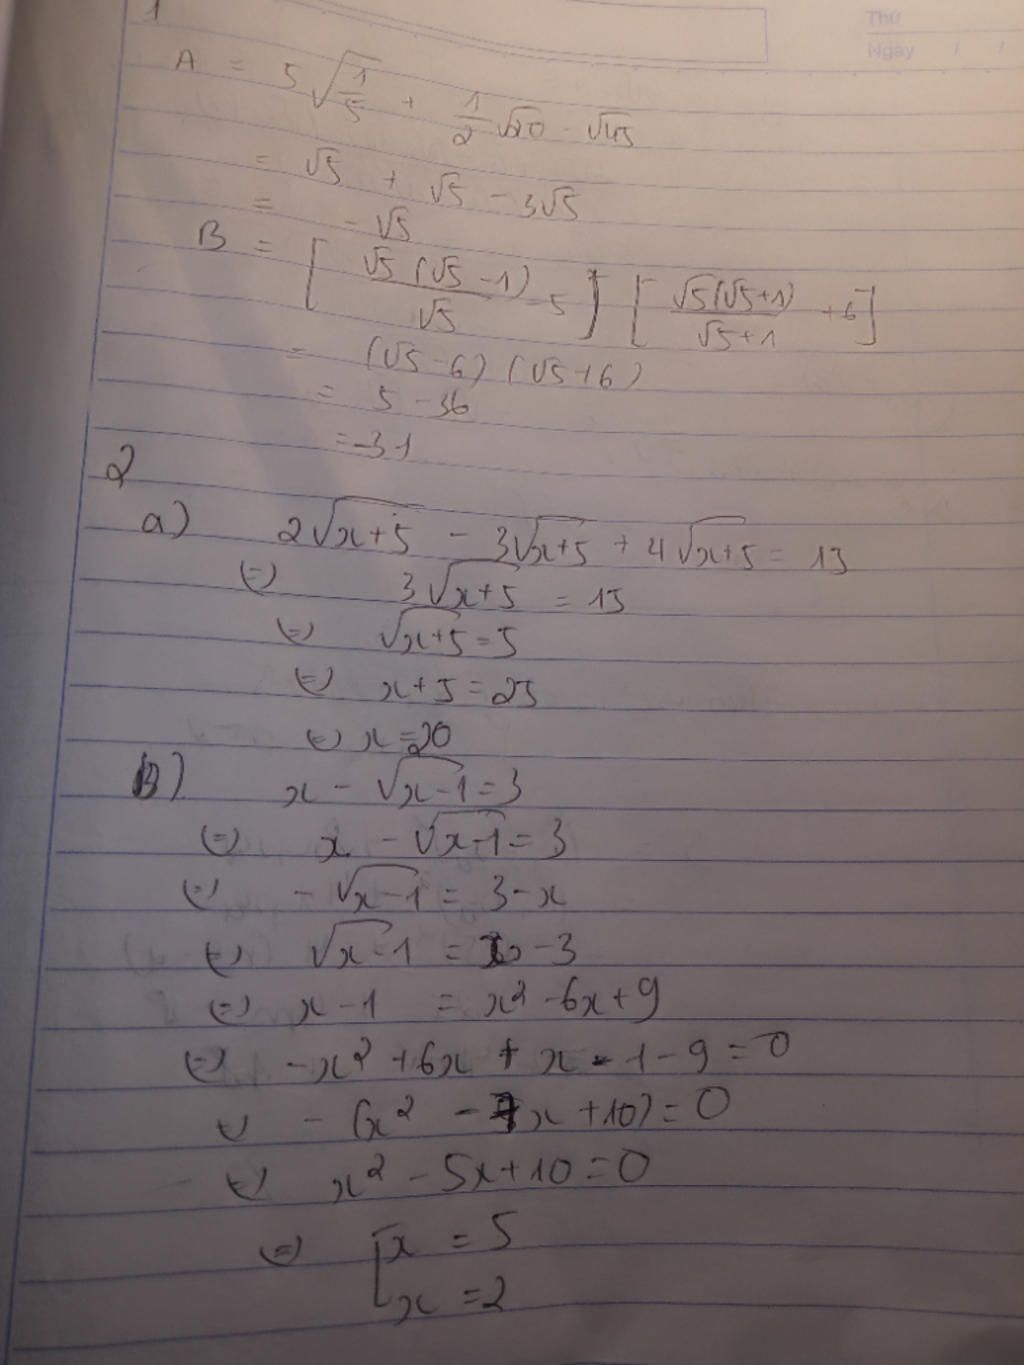 1
Thứ
Ngày / /
A = 5√(1/5) + 1/2 √20 - √45
= √5 + √5 - 3√5
= -√5
B = [ √5(√5-1)/√5 - 5 ] [ √5(√5+1)/(√5+1) + 6 ]
= (√5-6) (√5+6)
= 5 - 36
= -31
2
a) 2√(x+5) - 3√(x+5) + 4√(x+5) = 15
(=) 3√(x+5) = 15
(=) √(x+5) = 5
(=) x+5 = 25
(=) x = 20
B) x - √(x-1) = 3
(=) x - √(x-1) = 3
(=) -√(x-1) = 3-x
(=) √(x-1) = x-3
(=) x-1 = x² - 6x + 9
(=) -x² + 6x + x - 1 - 9 = 0
(=) -(x² - 7x + 10) = 0
(=) x² - 5x + 10 = 0
(=) [ x = 5
x = 2